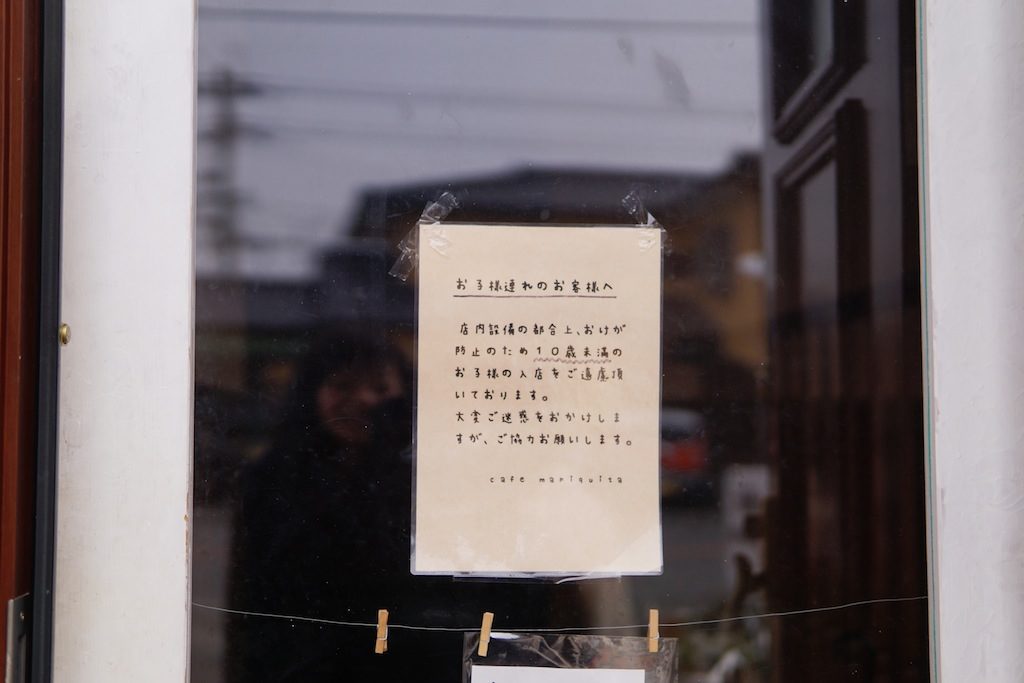 お子様連れのお客様へ
店内設備の都合上、おけが
防止のため10歳未満の
お子様の入店をご遠慮頂
いております。
大変ご迷惑をおかけしま
すが、ご協力お願いします。
cafe mariquita